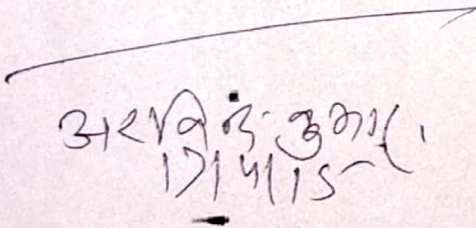 अरविन्द कुमार
17/4/15